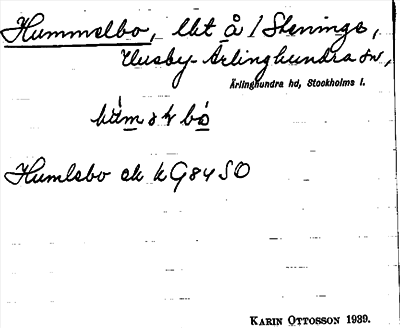 Hummelbo, lht å / Steninge,
Husby-Ärlinghundra sn,
Ärlinghundra hd, Stockholms l.
Humlebo ek kG84SO
KARIN OTTOSSON 1939.